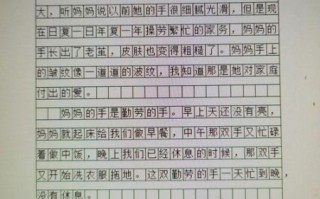 大。听妈妈说以前她的手很细腻光滑，但是现
在日复一日年复一年操劳繁忙的家务，妈妈的
手长出了老茧，皮肤也变得粗糙了。妈妈手上
的皱纹像一道道的波纹，我知道那是她对家庭
付出的爱。
妈妈的手是勤劳的手。早上天还没有亮，
妈妈就起床给我们做早餐，中午那双手又忙碌
着做中饭，晚上我们已经休息的时候，那双手
又开始洗衣服拖地。这双勤劳的手一天忙到晚
没有休息。